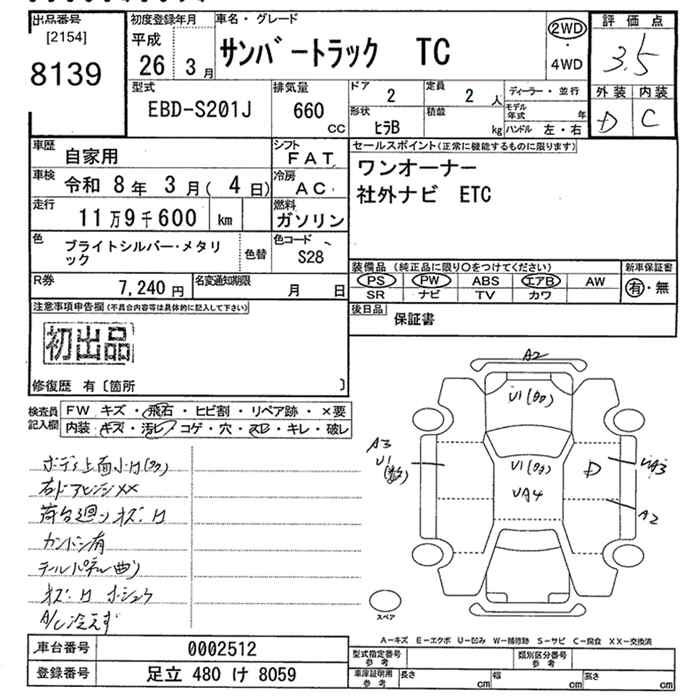 出品番号
[2154]
8139
初度登録年月
平成
26 3月
車名・グレード
サンバートラック TC
2WD
・
4WD
評価点
3.5
外装 内装
D C
型式
EBD-S201J
排気量
660
CC
ドア
2
定員
2 人
形状
ヒラB
積載
kg
ディーラー・並行
モデル年式 年
ハンドル 左・右
車歴
自家用
シフト
FAT
車検
令和 8年 3月( 4日)
冷房
AC
走行
11万9千600 km
燃料
ガソリン
色
ブライトシルバー・メタリック
色替
色コード
S28
R券
7,240円
名変通知期限
月 日
セールスポイント(正常に機能するものに限ります)
ワンオーナー
社外ナビ ETC
装備品 (純正品に限り○をつけてください)
PS PW ABS エアB AW
SR ナビ TV カワ
新車保証書
有・無
後日品
保証書
注意事項申告欄(不具合内容等は具体的に記入して下さい)
初出品
修復歴 有〔箇所 〕
検査員
記入欄
FW キズ・飛石・ヒビ割・リペア跡・×要
内装 キズ・汚レ・コゲ・穴・スレ・キレ・破レ
右ドアヒンジXX
カントン有
テールパネル曲り
A/C冷えず
A2
U1
U1
UA4
A3
U1
D
UA3
A2
スペア
A-キズ E-エクボ U-凹み W-補修跡 S-サビ C-腐食 XX-交換済
車台番号
0002512
登録番号
足立 480 け 8059
型式指定番号
参考
類別区分番号
参考
車庫証明用
参考
長さ cm
幅 cm
高さ cm